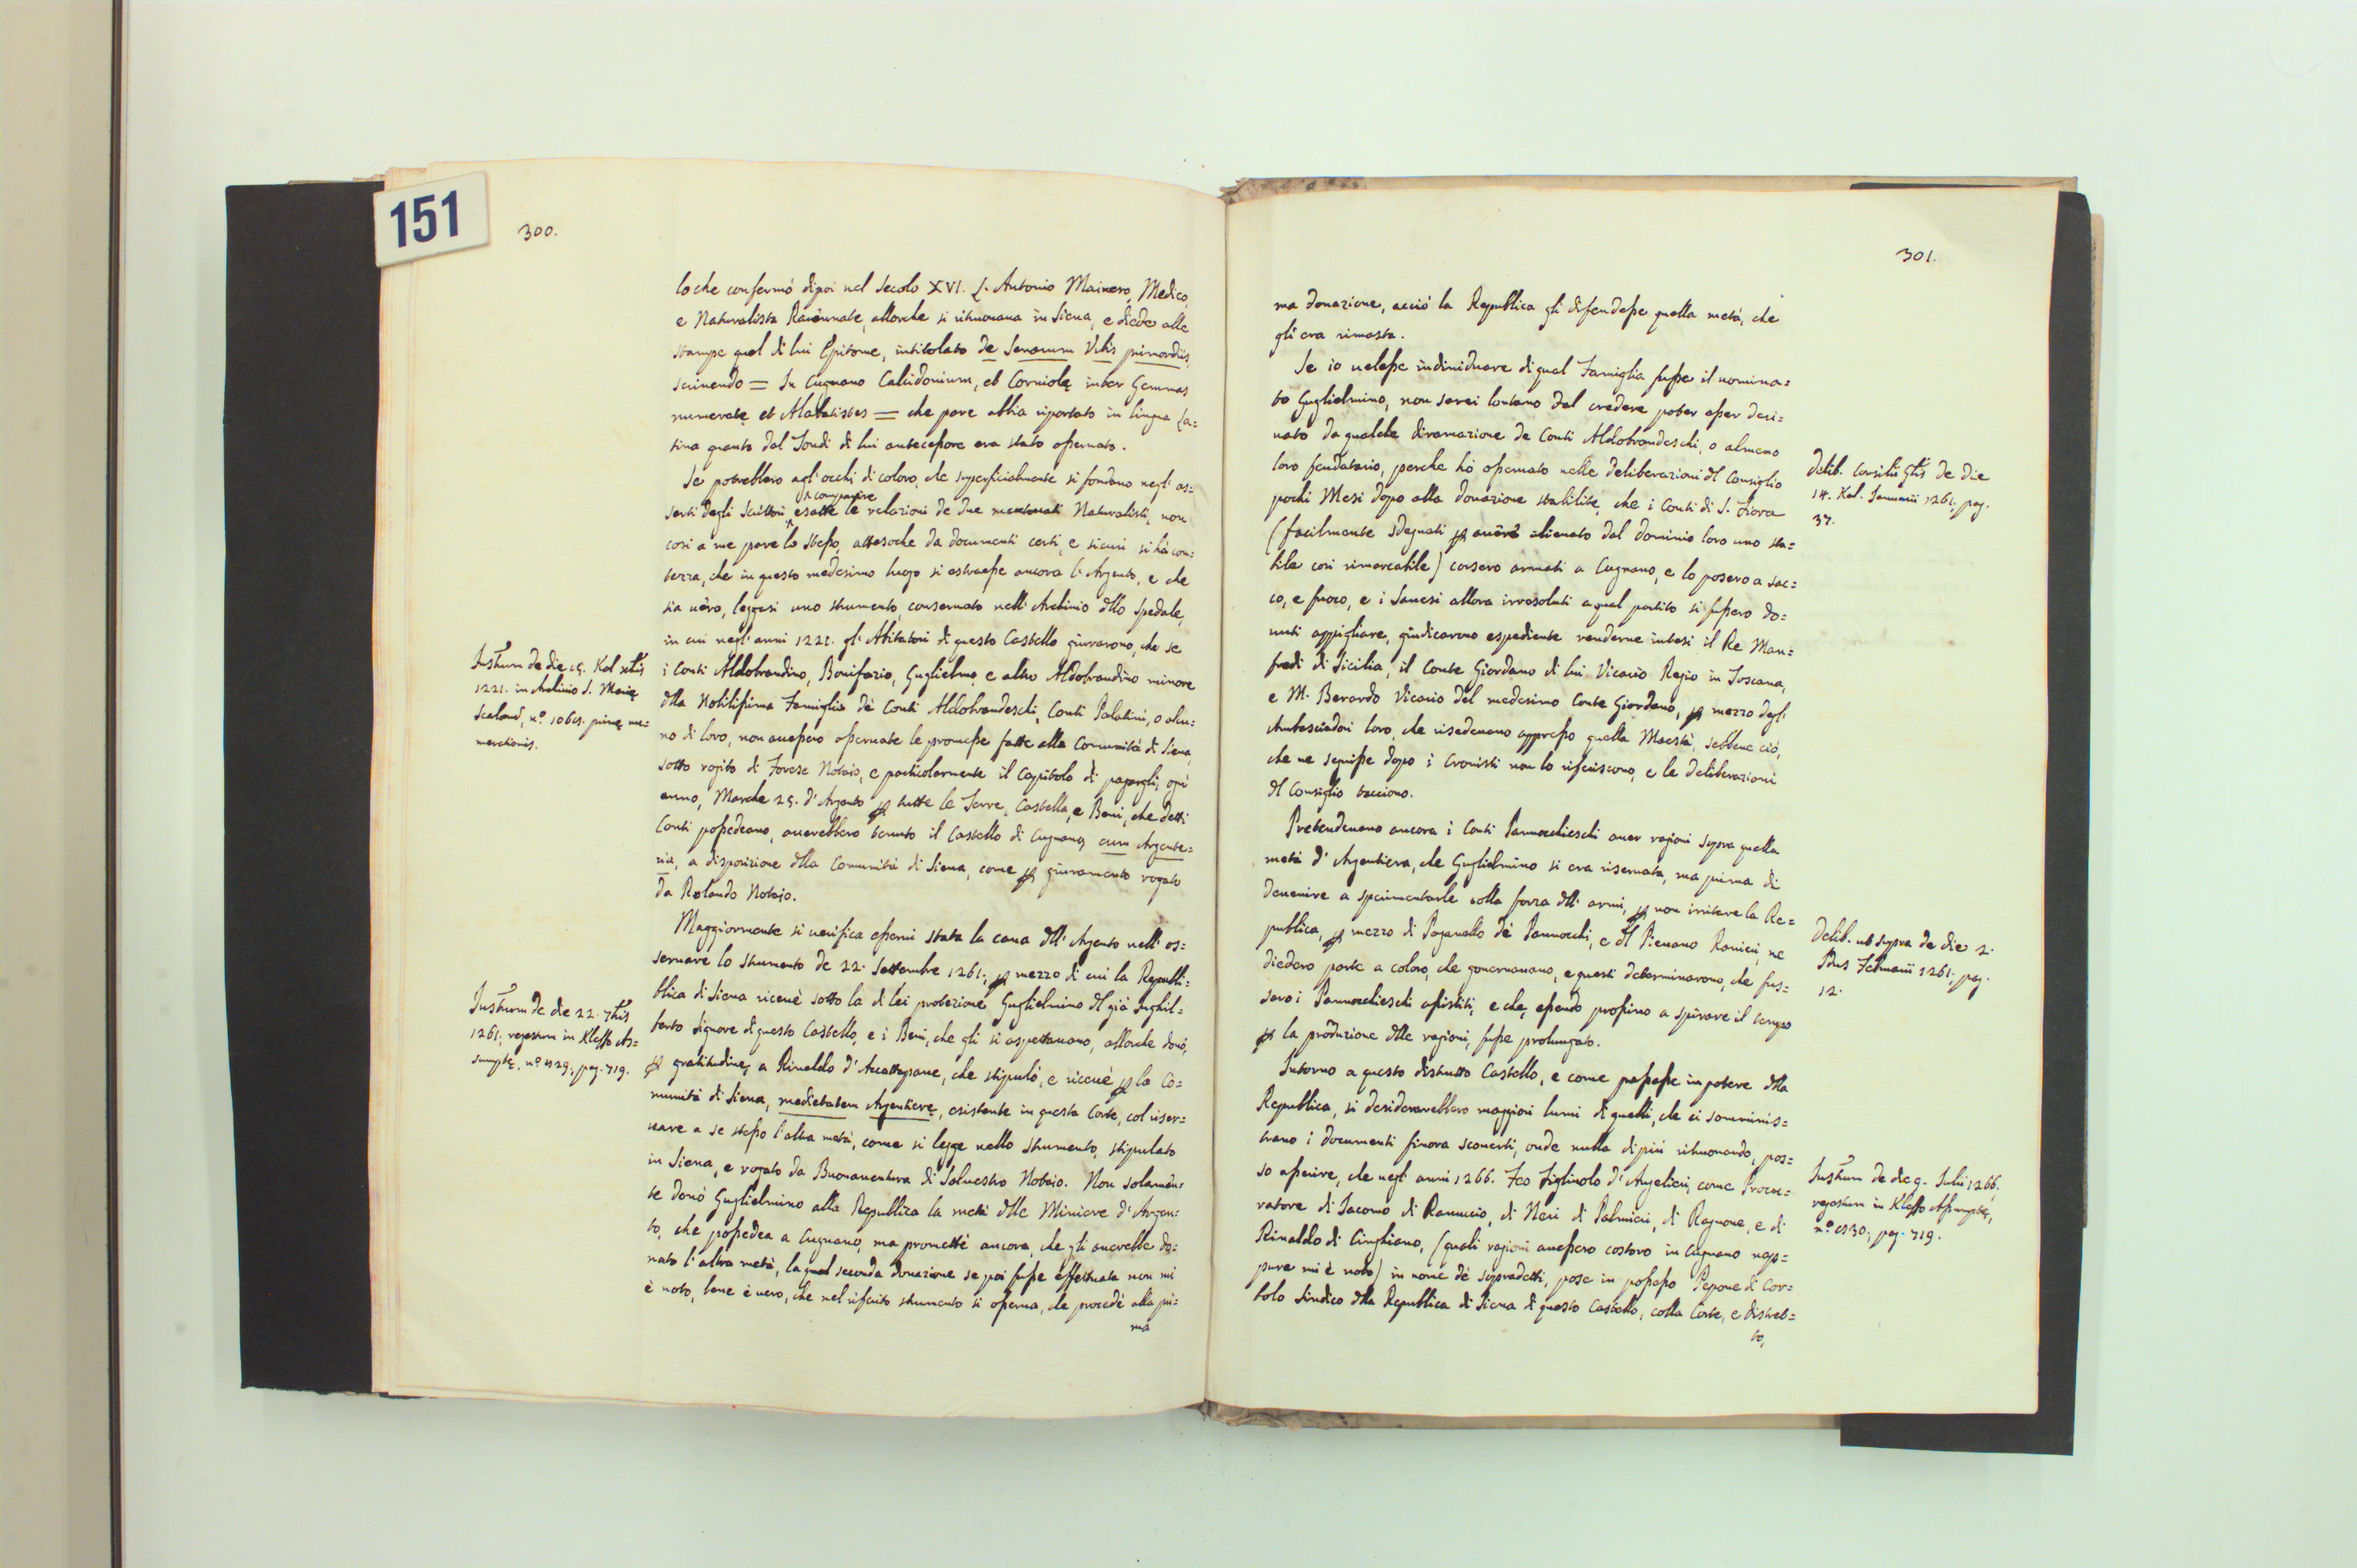 151
300.
lo che confermò dipoi nel Secolo XVI. L. Antonio Mainero, Medico,
e Naturalista Ravennate, allorche si ritrovava in Siena, e diede alle
stampe quel di lui Epitome, intitolato de Senarum Vrbis primordiis,
scrivendo = In Cugnano Calcidonium, et Corniolę inter Gemmas
numeratę et Alabastites = che pare abbia riportato in lingua La=
tina quanto dal Tondi di lui antecessore era stato osservato.
Se potrebbero agl'occhi di coloro, che superficialmente si fondano negl'as=
serti degli Scrittori comparire esatte le relazioni de due mentovati Naturalisti, non
così a me pare lo stesso, attesoche da documenti certi, e sicuri si há con=
tezza, che in questo medesimo luogo si estraesse ancora l'Argento, e che
sia vero, leggesi uno strumento, conservato nell'Archivio dllo Spedale,
in cui negl'anni 1221. gl'Abitatori di questo Castello giurarono, che se
i Conti Aldobrandino, Bonifazio, Guglielmo, e altro Aldobrandino minore
dlla Nobilissima Famiglia dè Conti Aldobrandeschi, Conti Palatini, o alcu=
no di loro, non avessero osservate le promesse fatte alla Comunità di Siena,
sotto rogito di Forese Notaio, e particolarmente il Capitolo di pagargli, ogni
anno, Marche 25. d'Argento p tutte le Terre, Castella, e Beni, che detti
Conti possedeano, averebbero tenuto il Castello di Cugnano, cum Argente=
ria, a disposizione dlla Comunità di Siena, come p giuramento rogato
da Rolando Notaio.
Maggiormente si verifica esservi stata la cava dll'Argento nell'os=
servare lo strumento de 22. Settembre 1261., p mezzo di cui la Repub=
blica di Siena ricevè sotto la di lei protezione Guglielmino dl già Inghil=
berto Signore di questo Castello, e i Beni, che gli si aspettavano, allorche donò,
p gratitudine, a Rinaldo d'Accattapane, che stipulò, e ricevè p la Co=
munità di Siena, medietatem Argentierę, esistente in questa Corte, col riser=
vare a se stesso l'altra metà, come si legge nello strumento, stipulato
in Siena, e rogato da Buonaventura di Salvestro Notaio. Non solamen=
te donò Guglielmino alla Republica la metà dlle Miniere d'Argen=
to, che possedea a Cugnano, ma promettè ancora, che gli averebbe do=
nato l'altra metà, la qual seconda donazione se poi fusse effettuata non mi
è noto, bene è vero, che nel riferito strumento si osserva, che procedè alla pri=
ma
Instrum de die 15. Kal xbris
1221. in Archivio S. Marię
Scalarum, nº. 1065. primę nu=
merationis.
Instrum de die 22. 7bris
1261., regestum in Kleffo As=
sumptę, nº. 529., pag. 719.
301.
ma donazione, acciò la Republica gli difendesse quella metà, che
gli era rimasta.
Se io volesse individuare di qual Famiglia fusse il nomina=
to Guglielmino, non sarei lontano dal credere poter esser deri=
vato da qualche diramazione de Conti Aldobrandeschi, o almeno
loro feudatario, perche hò osservato nelle deliberazioni dl Consiglio
pochi Mesi dopo alla donazione stabilita, che i Conti di S. Fiora
(facilmente sdegnati p avere alienato dal dominio loro uno sta=
bile così rimarcabile) corsero armati a Cugnano, e lo posero a sac=
co, e fuoco, e i Sanesi allora irresoluti a qual partito si fussero do=
vuti appigliare, giudicarono espediente renderne intesi il Re Man=
fredi di Sicilia, il Conte Giordano di lui Vicario Regio in Toscana,
e M. Berardo Vicario del medesimo Conte Giordano, p mezzo degl'
Ambasciadori loro, che risedevano appresso quella Maestà, sebbene ciò,
che ne seguisse dopo i Cronisti non lo riferiscono, e le deliberazioni
dl Consiglio tacciono.
Pretendevano ancora i Conti Pannocchieschi aver ragioni sopra quella
metà d'Argentiera, che Guglielmino si era riservata, ma prima di
devenire a sperimentarle colla forza dll'armi, p non irritare la Re=
publica, p mezzo di Paganello dè Pannocchi, e dl Pievano Ranieri, ne
diedero parte a coloro, che governavano, e questi determinarono, che fus=
sero i Pannocchieschi assistiti, e che, essendo prossimo a spirare il tempo
p la produzione dlle ragioni, fusse prolungato.
Intorno a questo distrutto Castello, e come passasse in potere dlla
Republica, si desiderarebbero maggiori lumi di quelli, che ci sommini=
strano i documenti finora scoverti, onde nulla di più ritrovando, pos=
so asserire, che negl'anni 1266. Feo Figliuolo d'Angelieri, come Procu=
ratore di Jacomo di Ranuccio, di Neri di Palmieri, di Ragnone, e di
Rinaldo di Cinghiano, (quali ragioni avessero costoro in Cugnano nep=
pure mi è noto) in nome dè sopradetti, pose in possesso Pepone di Cor=
tolo Sindico dlla Republica di Siena di questo Castello, colla Corte, e Distret=
to,
Delib. Consilii Gňis de die
14. Kal. Januarii 1261. pag.
37.
Delib. ut supra de die 2.
Idus Februarii 1261. pag.
12.
Instrum de die 9. Julii 1266.,
regestum in Kleffo Assumptę,
nº. 530., pag. 719.